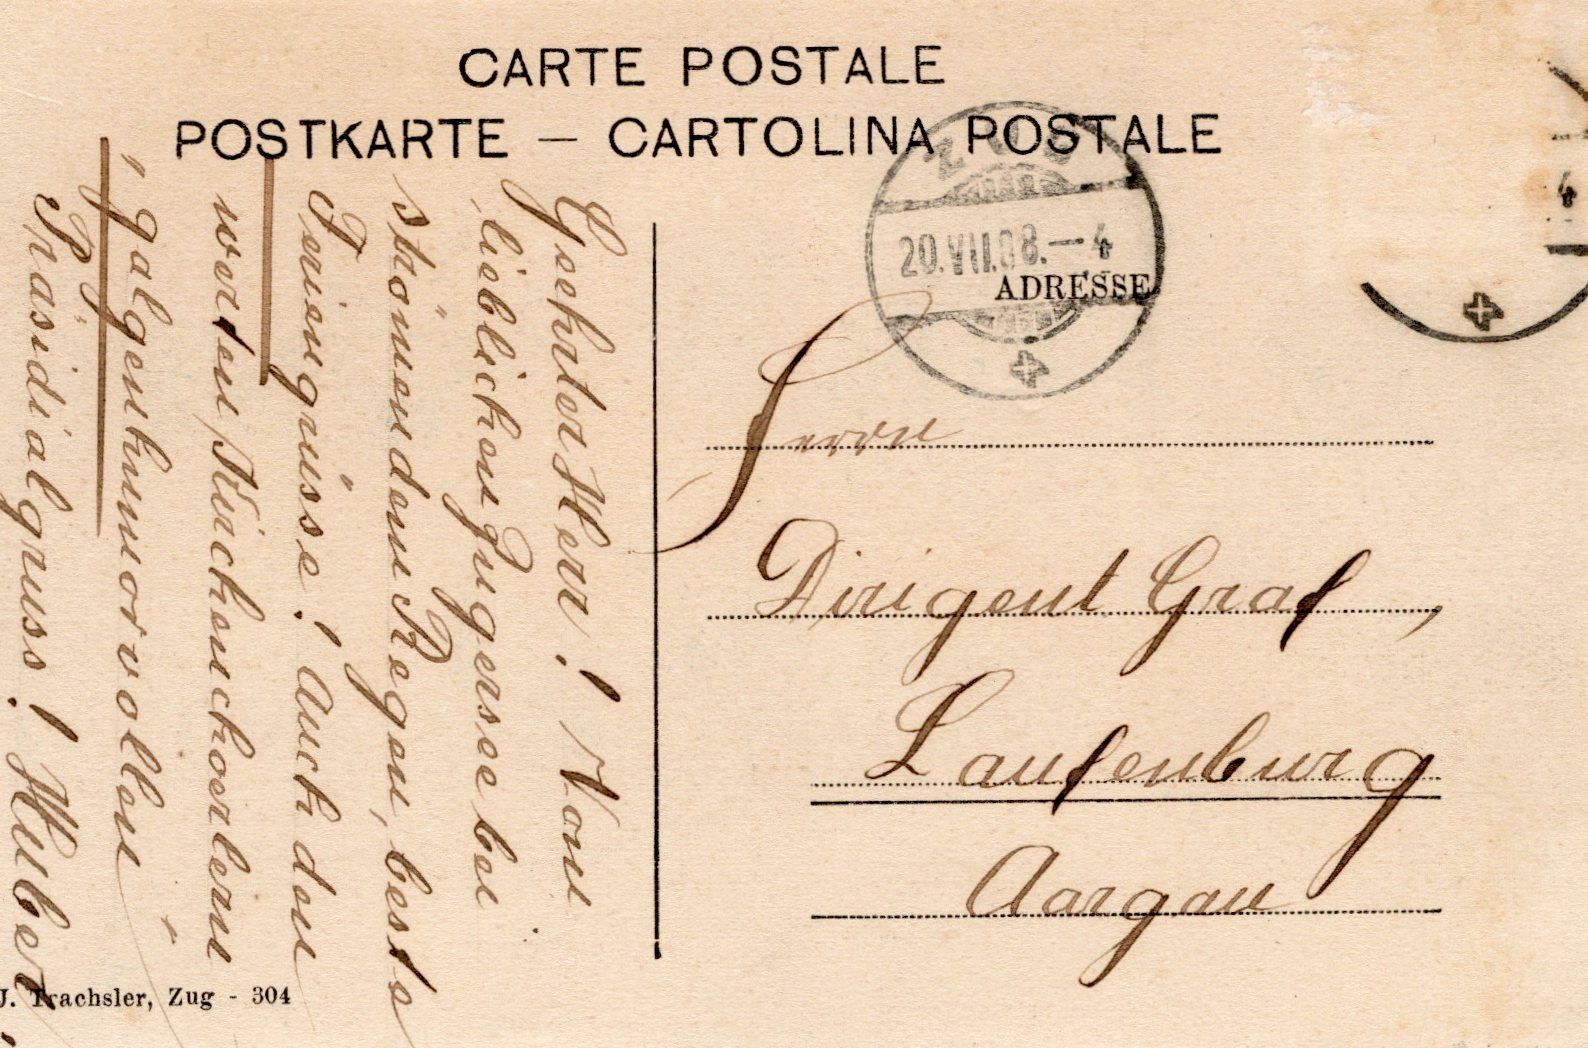 CARTE POSTALE
POSTKARTE — CARTOLINA POSTALE
ZUG
20.VII.08.—4
ADRESSE
4
Geehrter Herr! Vom
lieblichen Zugersee bei
strömendem Regen, beste
Feriengrüsse! Auch den
werten Kirchenchoerlern
„galgenhumorvollen"
Präsidialgruss! Huber.
Herrn
Dirigent Graf,
Laufenburg
Aargau
J. Trachsler, Zug - 304